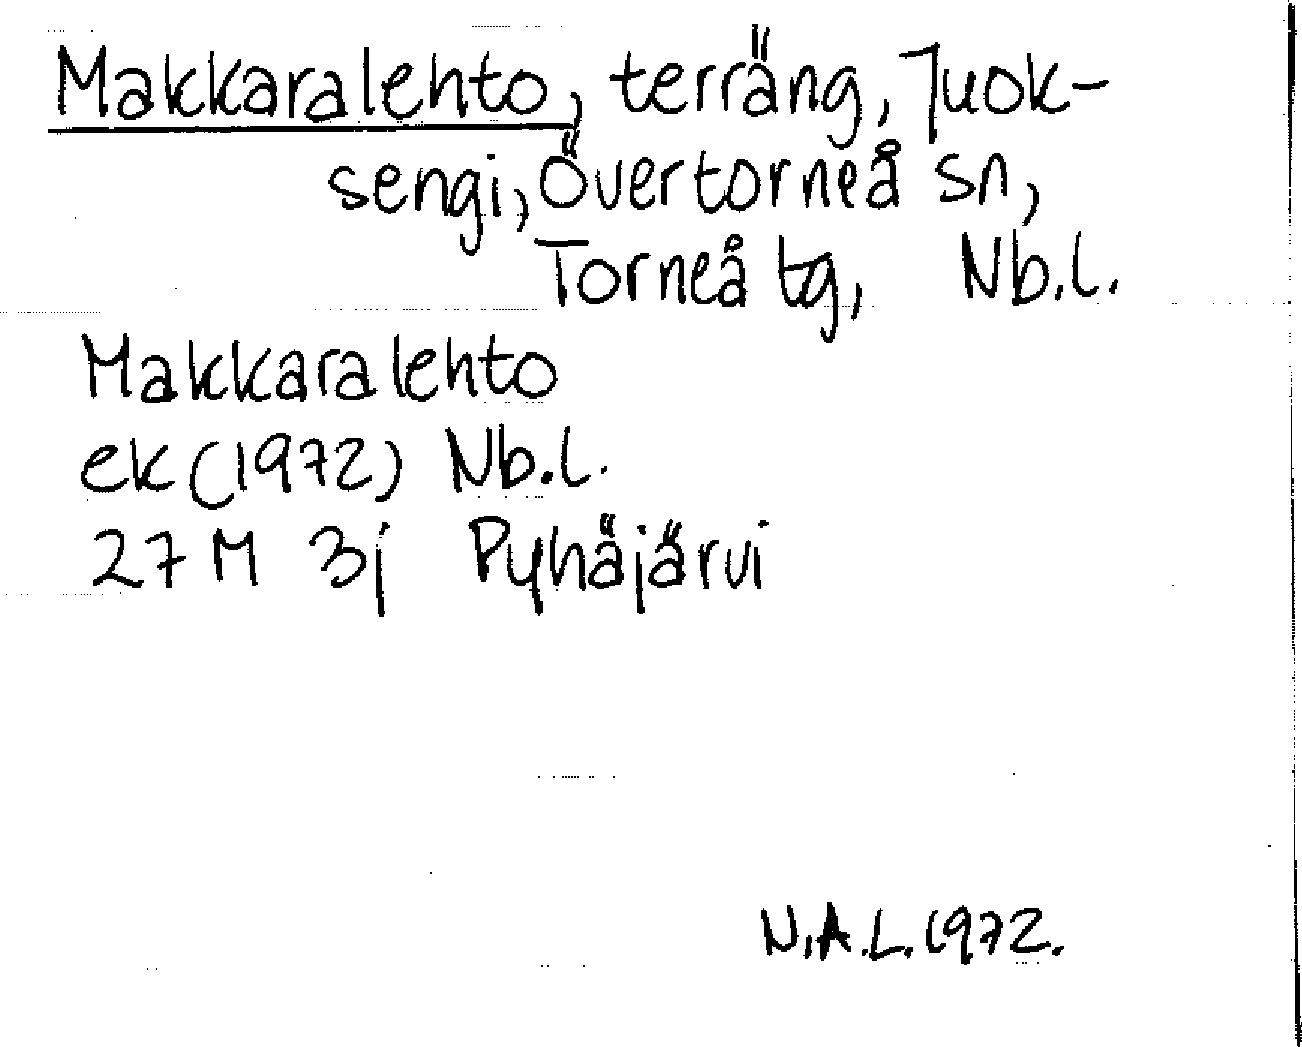 Makkaralehto, terräng, Juok-
sengi, Övertorneå sn,
Torneå tg, Nb.l.
Makkaralehto
ek (1972) Nb.l.
27 M 3j Pyhäjärvi
N.A.L. 1972.